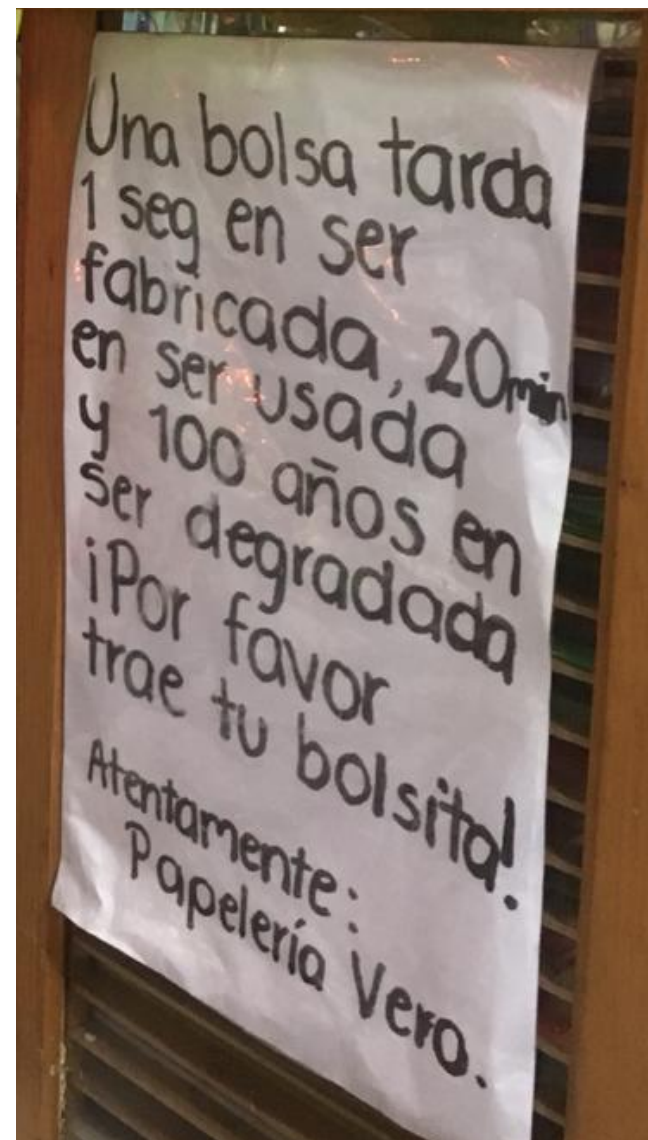 Una bolsa tarda
1 seg en ser
fabricada, 20min
en ser usada
y 100 años en
ser degradada
¡Por favor
trae tu bolsita!
Atentamente:
Papelería Vero.